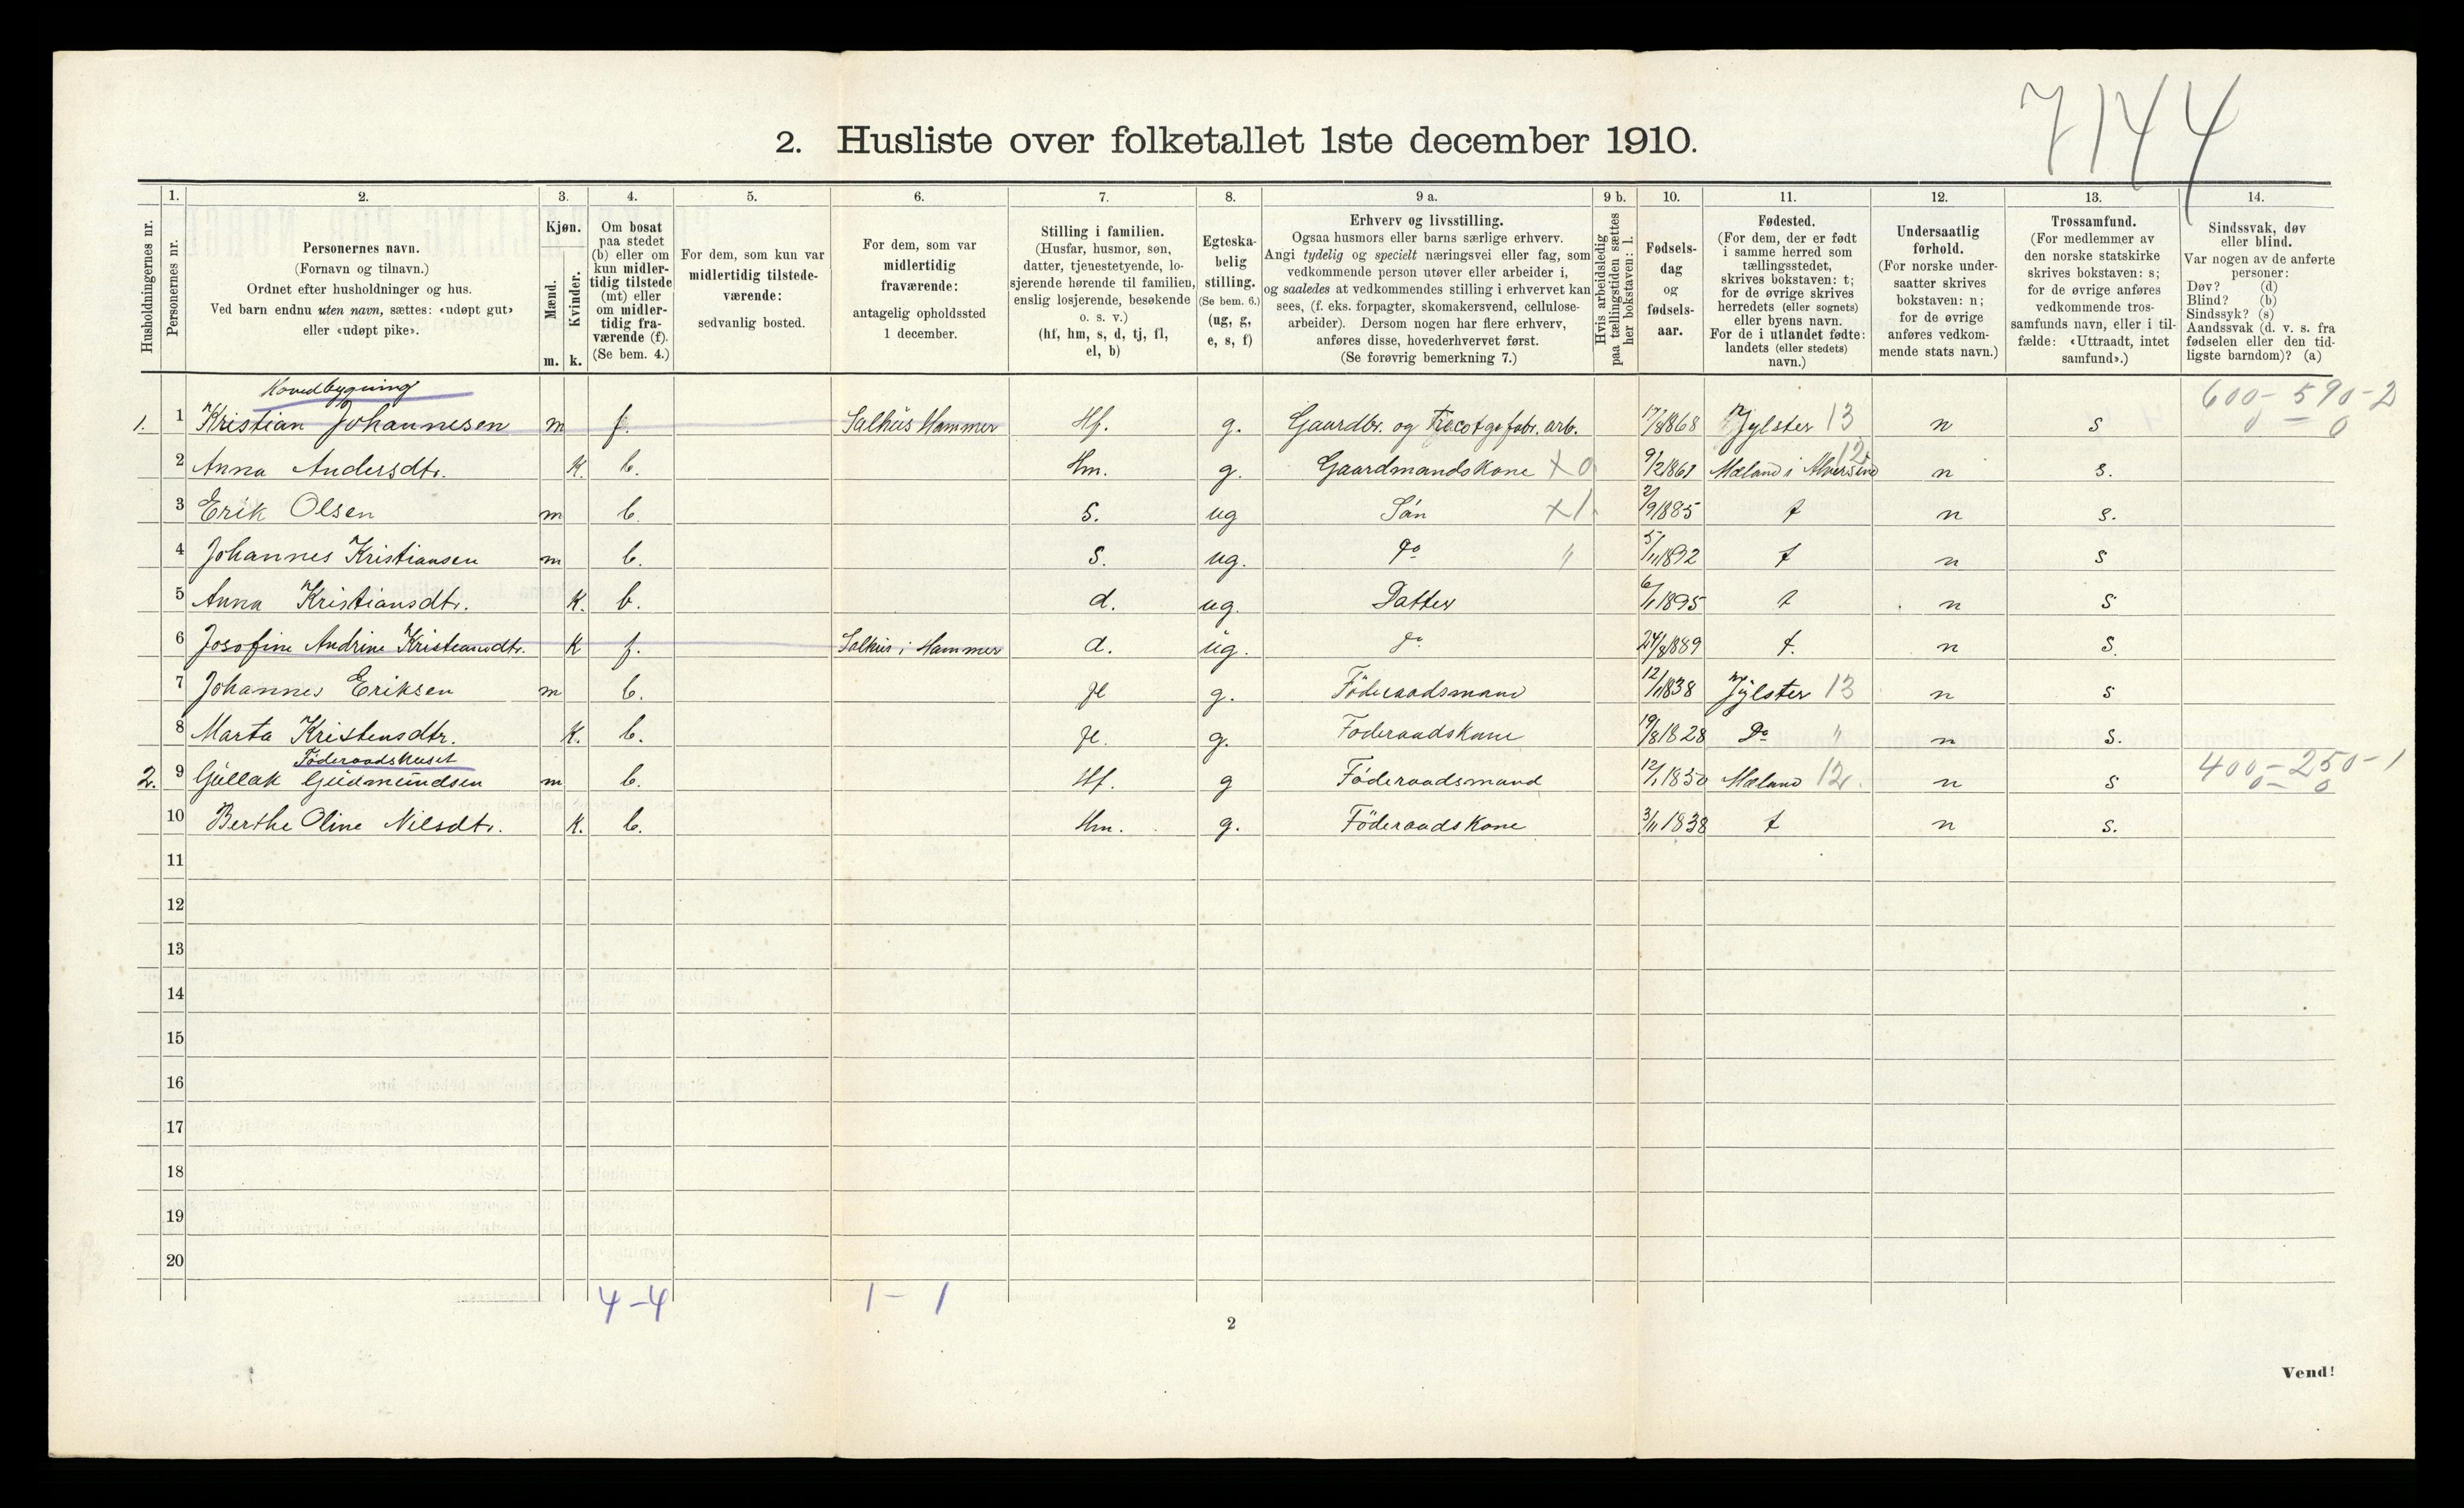 7144
2. Husliste over folketallet 1ste december 1910.
Husholdningernes nr.
1. Personernes nr.
2. Personernes navn.
(Fornavn og tilnavn.)
Ordnet efter husholdninger og hus.
Ved barn endnu uten navn, sættes: «udøpt gut»
eller «udøpt pike».
3. Kjøn.
Mænd. m.
Kvinder. k.
4. Om bosat
paa stedet
(b) eller om
kun midler-
tidig tilstede
(mt) eller
om midler-
tidig fra-
værende (f).
(Se bem. 4.)
5. For dem, som kun var
midlertidig tilstede-
værende:
sedvanlig bosted.
6. For dem, som var
midlertidig
fraværende:
antagelig opholdssted
1 december.
7. Stilling i familien.
(Husfar, husmor, søn,
datter, tjenestetyende, lo-
sjerende hørende til familien,
enslig losjerende, besøkende
o. s. v.)
(hf, hm, s, d, tj, fl,
el, b)
8. Egteska-
belig
stilling.
(Se bem. 6.)
(ug, g,
e, s, f)
9 a. Erhverv og livsstilling.
Ogsaa husmors eller barns særlige erhverv.
Angi tydelig og specielt næringsvei eller fag, som
vedkommende person utøver eller arbeider i,
og saaledes at vedkommendes stilling i erhvervet kan
sees, (f. eks. forpagter, skomakersvend, cellulose-
arbeider). Dersom nogen har flere erhverv,
anføres disse, hovederhvervet først.
(Se forøvrig bemerkning 7.)
9 b. Hvis arbeidsledig
paa tællingstiden sættes
her bokstaven: l.
10. Fødsels-
dag
og
fødsels-
aar.
11. Fødested.
(For dem, der er født
i samme herred som
tællingsstedet,
skrives bokstaven: t;
for de øvrige skrives
herredets (eller sognets)
eller byens navn.
For de i utlandet fødte:
landets (eller stedets)
navn.)
12. Undersaatlig
forhold.
(For norske under-
saatter skrives
bokstaven: n;
for de øvrige
anføres vedkom-
mende stats navn.)
13. Trossamfund.
(For medlemmer av
den norske statskirke
skrives bokstaven: s;
for de øvrige anføres
vedkommende tros-
samfunds navn, eller i til-
fælde: «Uttraadt, intet
samfund».)
14. Sindssvak, døv
eller blind.
Var nogen av de anførte
personer:
Døv? (d)
Blind? (b)
Sindssyk? (s)
Aandssvak (d. v. s. fra
fødselen eller den tid-
ligste barndom)? (a)
Hovedbygning
600 - 590 - 2
0 - 0
1. 1 Kristian Johannesen m f. Salhus Hammer Hf. g. Gaardbr. og Tricotgefabr. arb. 17/8 1868 Jylster 13 n s
2 Anna Andersdtr. K. b. Hm. g. Gaardmandskone x 0 9/2 1861 Mæland i Alversund 12 n s.
3 Erik Olsen m b. S. ug Sön x 1. 2/9 1885 t n s.
4 Johannes Kristiansen m b. S. ug. Do " 5/11 1892 t n s
5 Anna Kristiansdtr. K. b. d. ug. Datter 6/1 1895 t n s
6 Josofine Andrine Kristiansdtr. K f. Salhus i Hammer d. ug. do 24/8 1889 t. n s.
7 Johannes Eriksen m b. fl g. Föderaadsmand 12/1 1838 Jylster 13 n s
8 Marta Kristensdtr. K. b. fl. g. Föderaadskone 19/8 1828 Do " n s.
Föderaadshuset
400 - 250 - 1
0 - 0
2. 9 Gullak Gudmundsen m b. Hf. g Föderaadsmand 12/1 1850 Mæland 12. n s
10 Berthe Oline Nilsdtr. K. b. Hm. g. Föderaadskone 3/11 1838 t n s.
11
12
13
14
15
16
17
18
19
20
4 - 4 1 - 1
2
Vend!